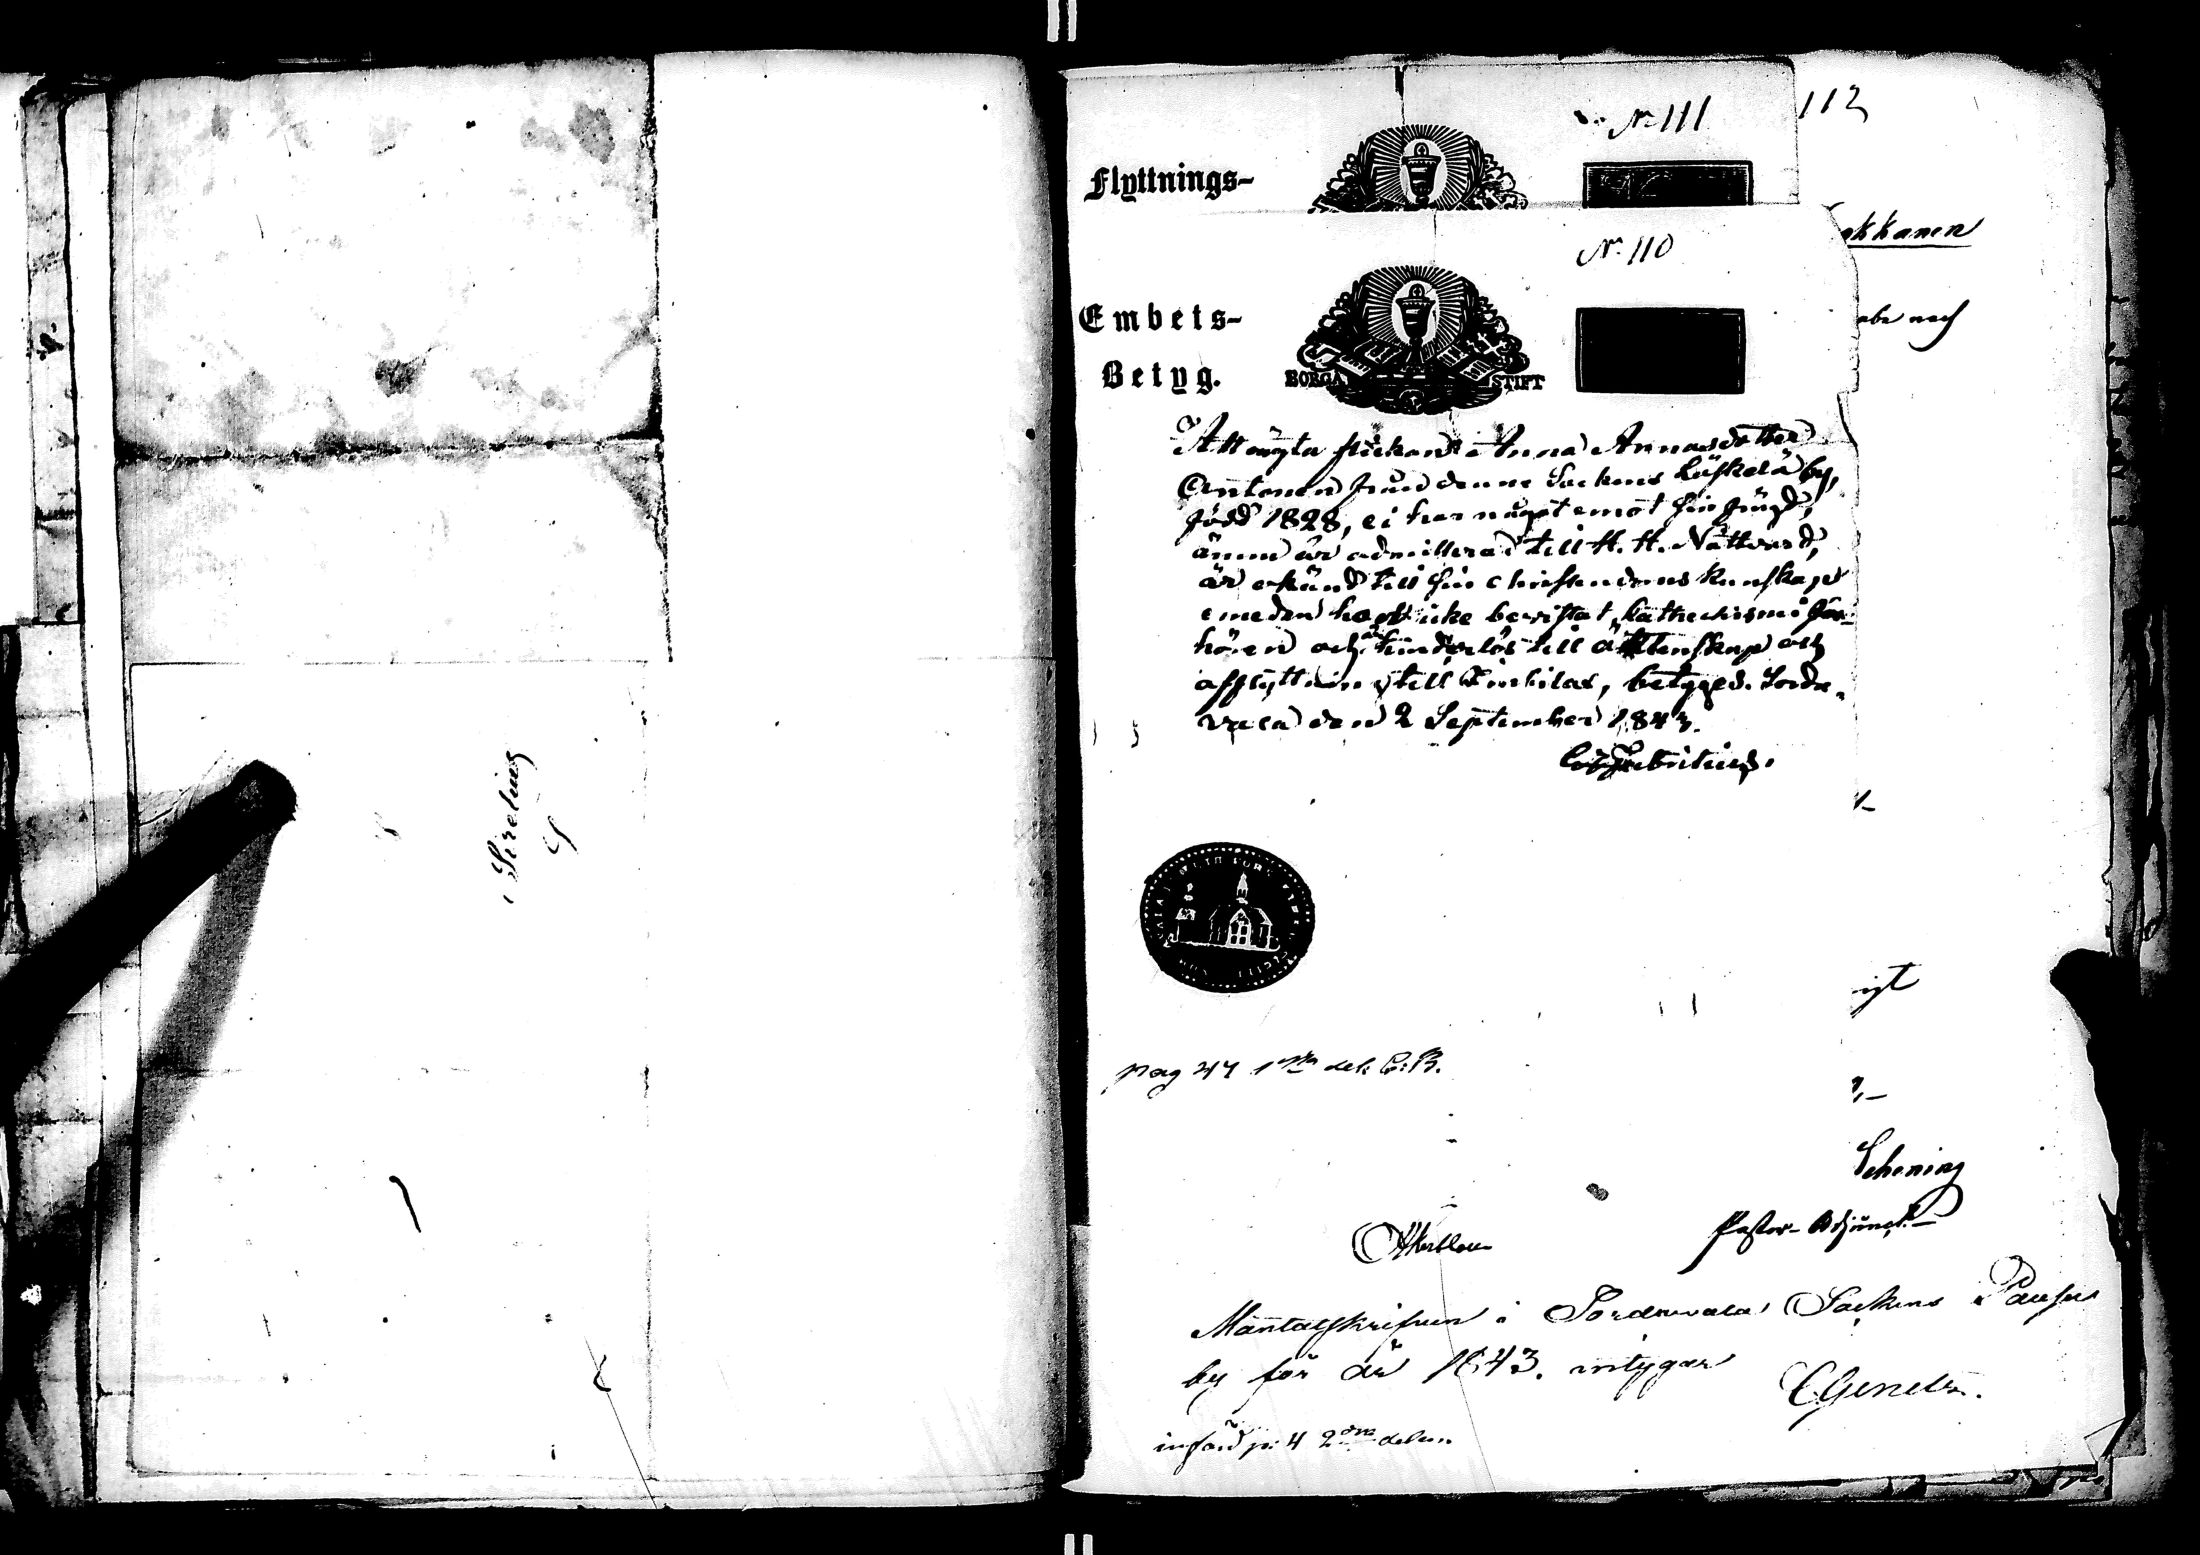 Sirelius
112
No 111
Flyttnings-
okkanen
No 110
Embets-
Betyg.
BORGÅ STIFT
abe nach
Att ägta flickan Anna Annasdotter
Antonen från denne Sockens Läskelä by,
född 1828, ei har något emot sin frägd,
ännu är admitterad till H. H. Nattvard,
är erkänd till sin christendoms kunskap
emedan hon icke bevistat Kathechismi för-
hören och är hinderlös till äktenskap och
afflyttning till Imbilax, betyges. Sorda-
vala den 2 September 1843.
Fabritius.
pag 247 1sta del: C:B.
Schening
Pastor-Adjunct.
Åkerblom
Mantalskrifven i Sordavala Sockens
by för år 1843. intygar
införd p: 4 2dra delen.